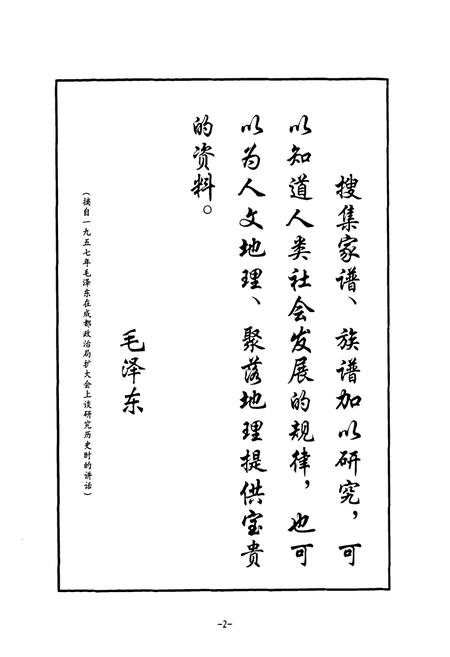 搜集家谱、族谱加以研究，可
以知道人类社会发展的规律，也可
以为人文地理、聚落地理提供宝贵
的资料。
毛泽东
（摘自一九五七年毛泽东在成都政治局扩大会上谈研究历史时的讲话）
-2-